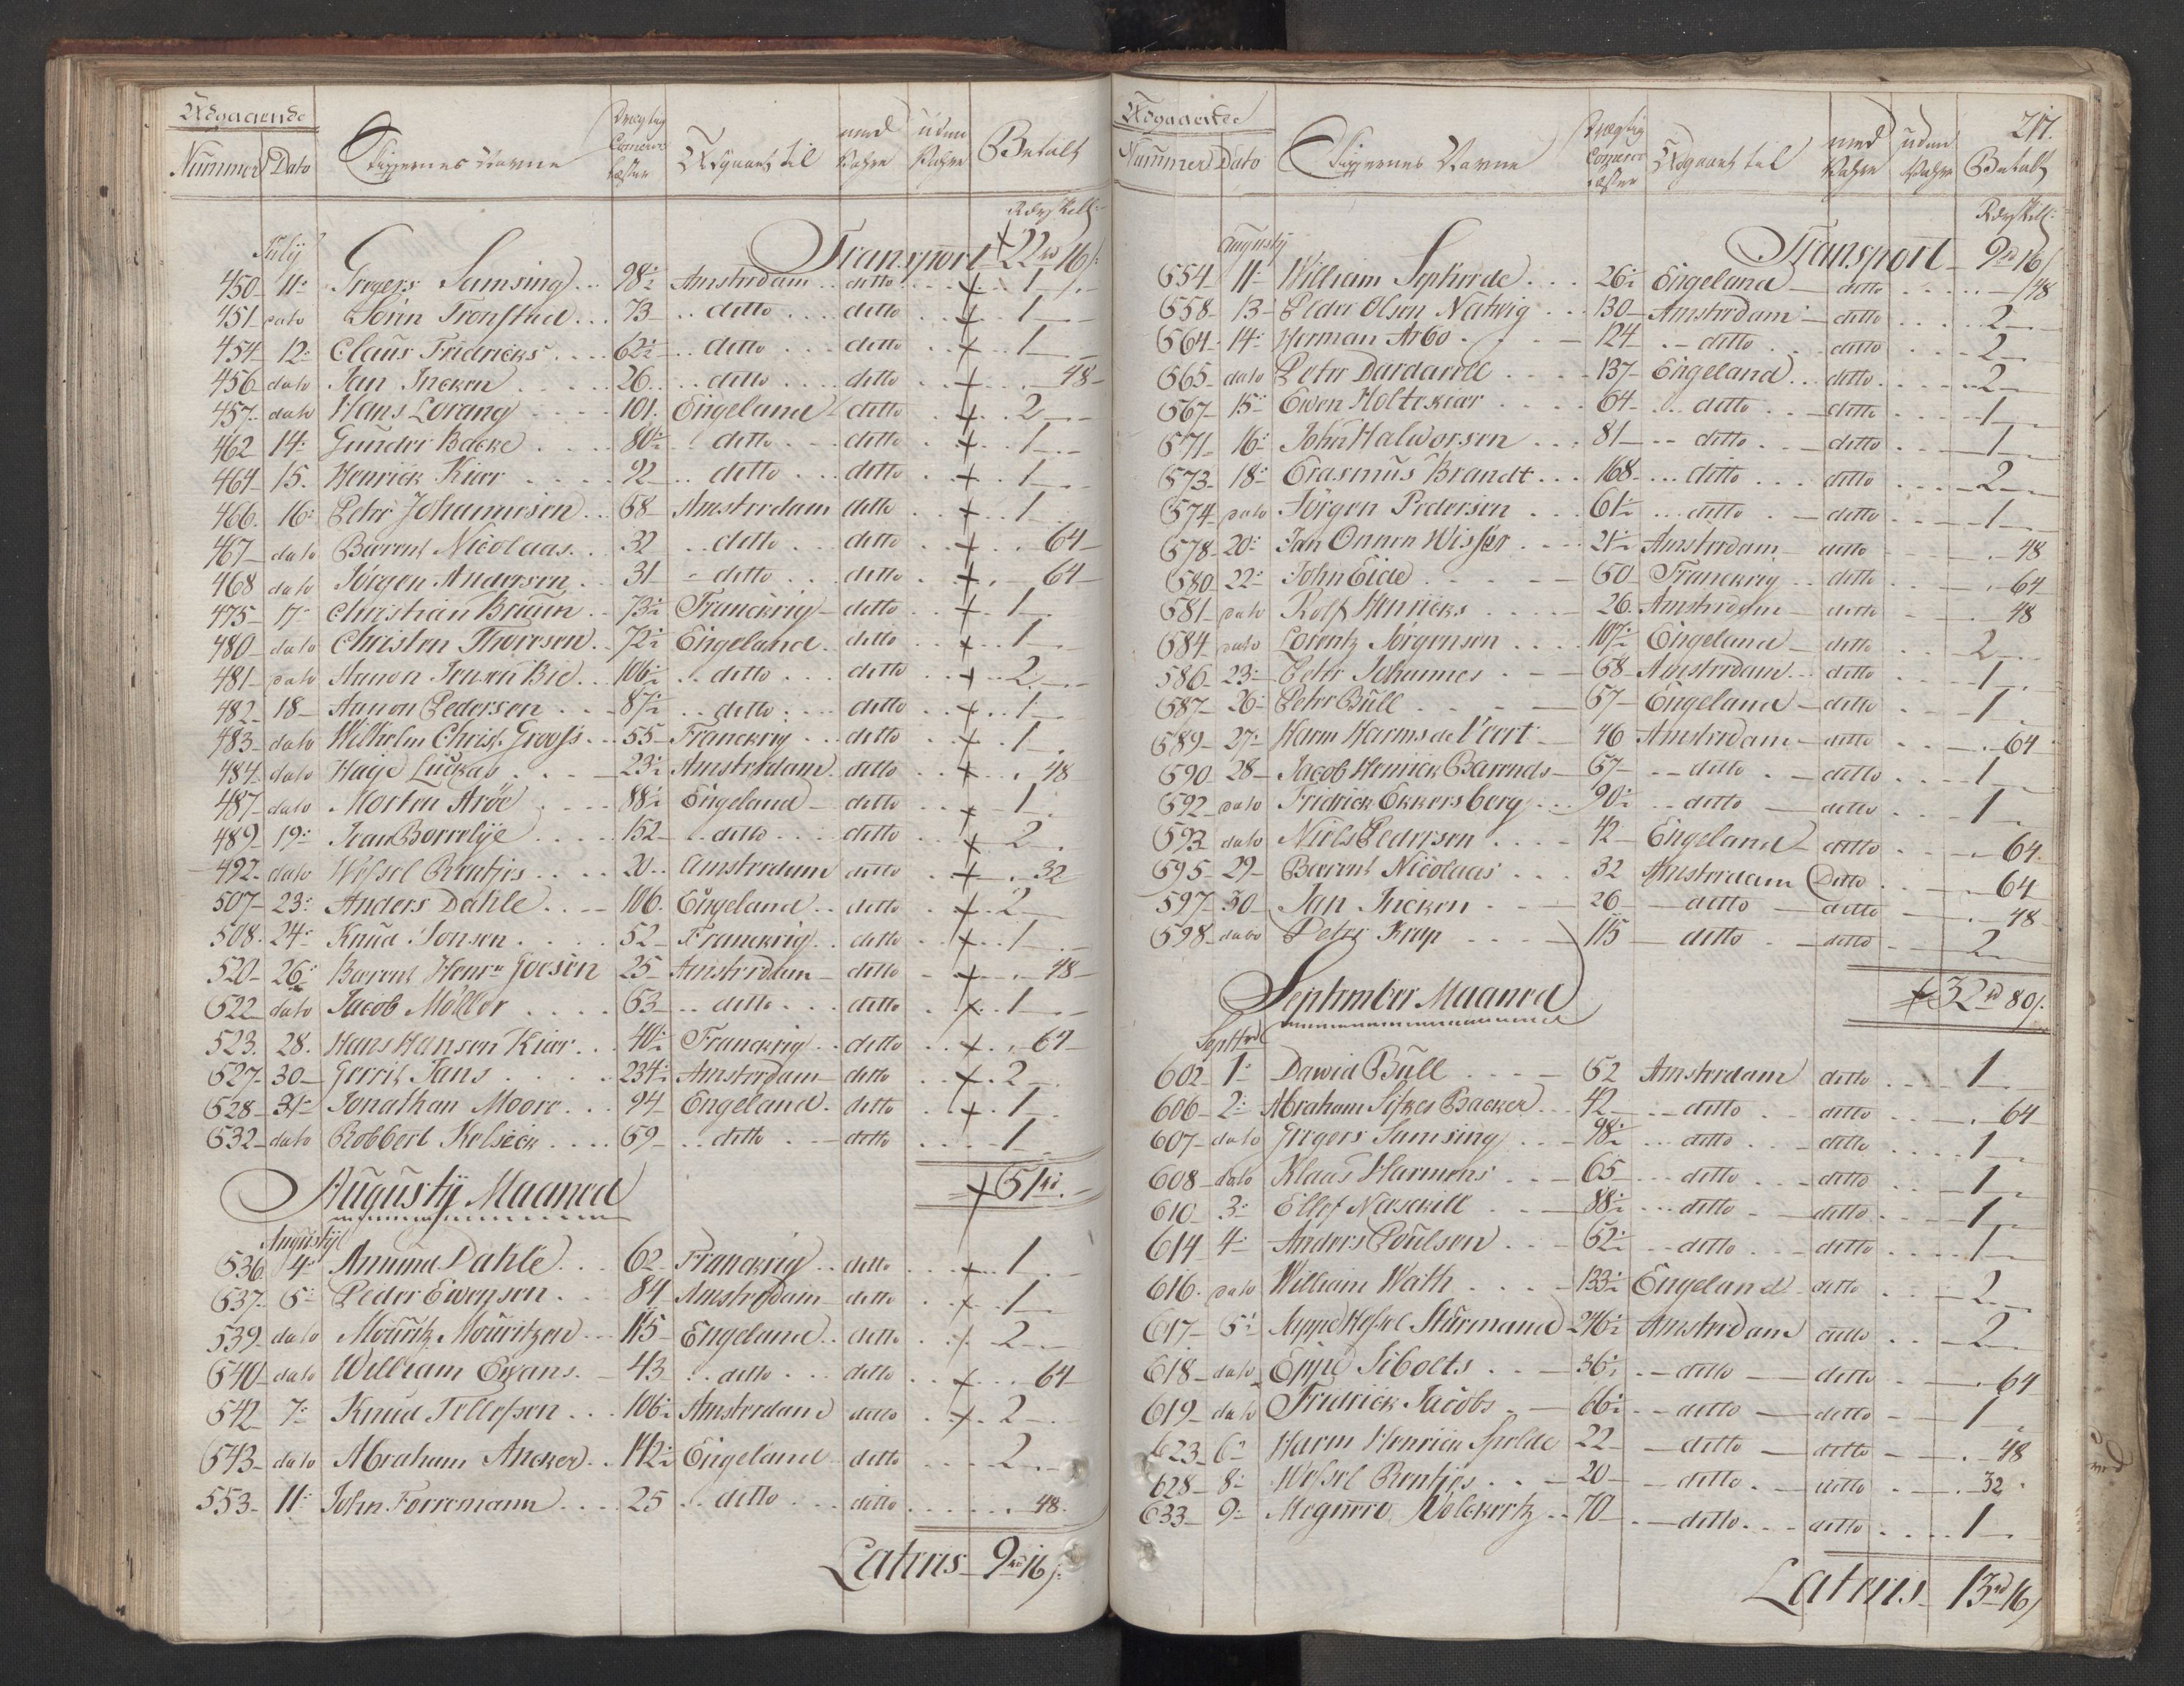 Udgaaende
Nummer Dato Skippernes Navne Drægtig Comerce Læster Udgaaet til med Ladn: uden Ladn: Betalt
Rdr skill:
July Transport 22 rd 16 s:
450 11: Gregers Samsing 98½ Amsterdam ditto 1
451 dato Sörin Tronstad 73 ditto ditto 1
454 12: Claus Fridricks 62½ ditto ditto 1
456 dato Jan Incken 26 ditto ditto 48
457 dato Hans Lorang 101 Engeland ditto 2
462 14: Gunder Backe 80½ ditto ditto 1
464 15. Henrick Kiær 92 ditto ditto 1
466 16: Peter Johannesen 58 Amsterdam ditto 1
467 dato Barent Nicolaas 32 ditto ditto 64
468 dato Jörgen Andersen 31 ditto ditto 64
475 17 Christian Bruun 73½ Franckrig ditto 1
480 dato Christen Thoresen 72½ Engeland ditto 1
481 dato Aanon Bie 106½ ditto ditto 2
482 18 Aanon Pedersen 87½ ditto ditto 1
483 dato Wilhelm Christ. Grooss 55 Franckrig ditto 1
484 dato Haije Luckas 23½ Amsterdam ditto 48
487 dato Morten Aröe 88½ Engeland ditto 1
489 19: Ivar Borrelije 152 ditto ditto 2
492 dato Wessel Rentjes 20 Amsterdam ditto 32
507 23: Anders Dahle 106 Engeland ditto 2
508 24: Knud Jonsen 52 Franckrig ditto 1
520 26: Barent Henr: Goosen 25 Amsterdam ditto 48
522 dato Jacob Möller 53 ditto ditto 1
523 28. Hans Hansen Kiær 40½ Franckrig ditto 64
527 30 Gerrit Jans 234½ Amsterdam ditto 2
528 31 Jonathan Moore 94 Engeland ditto 1
532 dato Robbert Kelsick 59 ditto ditto 1
51 rd
Augustij Maaned
Augustij
536 4: Amund Dahle 62 Franckrig ditto 1
537 5: Peder Ewensen 84 Amsterdam ditto 1
539 dato Mouritz Mouritzen 115 Engeland ditto 2
540 dato William Ewans 43 ditto ditto 64
542 7: Knud Tellefsen 106½ Amsterdam ditto 2
543 dato Abraham Ancker 142½ Engeland ditto 2
553 11: John Forremann 25 ditto ditto 48
Lateris 9 rd 16 s:
217.
Udgaaende
Nummer Dato Skippernes Navne Drægtig Comerce Læster Udgaaet til med Ladn: uden Ladn: Betalt
Rdr skill:
Augustij Transport 9 rd 16 s
554 11 William 26½ Engeland ditto 48
558 13 Peder Olsen Natwig 130 Amsterdam ditto 2
564 14: Herman Arbo 124 ditto ditto 2
565 dato Peter Dardarell 137 Engeland ditto 2
567 15: Ewen Holtekiær 64 ditto ditto 1
571 16: John Halworsen 81 ditto ditto 1
573 18: Erasmus Brandt 168 ditto ditto 2
574 dato Jörgen Pedersen 61½ ditto ditto 1
578 20: Jan Onnen Wisser 21½ Amsterdam ditto 48
580 22: John Eide 50 Franckrig ditto 64
581 dato Rolf Henricks 26 Amsterdam ditto 48
584 dato Lorentz Jörgensen 107½ Engeland ditto 2
586 23: Peter Johannes 58 Amsterdam ditto 1
587 26: Peter Bull 57 Engeland ditto 1
589 27: Harm Harms de Vert 46 Amsterdam ditto 64
590 28 Jacob Henrick Barends 57 ditto ditto 1
592 dato Fridrick Eckersberg 90½ ditto ditto 1
593 dato Niels Pedersen 42 Engeland ditto 64
595 29 Barent Nicolaas 32 Amsterdam Ditto 64
597 30 Jan Incken 26 ditto ditto 48
598 dato Peter Krap 115 ditto ditto 2
32 rd 80 s.
September Maaned
Septbr
602 1: Dawid Bull 52 Amsterdam ditto 1
606 2: Abraham Sifkes Backer 42 ditto ditto 64
607 dato Gregers Samsing 98½ ditto ditto 1
608 dato Klaas Harmens 65 ditto ditto 1
610 3: Ellef Naschill 88½ ditto ditto 1
614 4: Anders Poulsen 52½ ditto ditto 1
616 dato William Wath 133½ Engeland ditto 2
617 5: Auppe Hessel Stürmand 246½ Amsterdam ditto 2
618 dato Eppe Sibolts 36½ ditto ditto 64
619 dato Fridrick Jacobs 66½ ditto ditto 1
623 6: Harm Henrick Spelde 22 ditto ditto 48
628 8: Wessel Rentjes 20 ditto ditto 32
633 9: Volckertz 70 ditto ditto 1
Lateris 13 rd 16 s